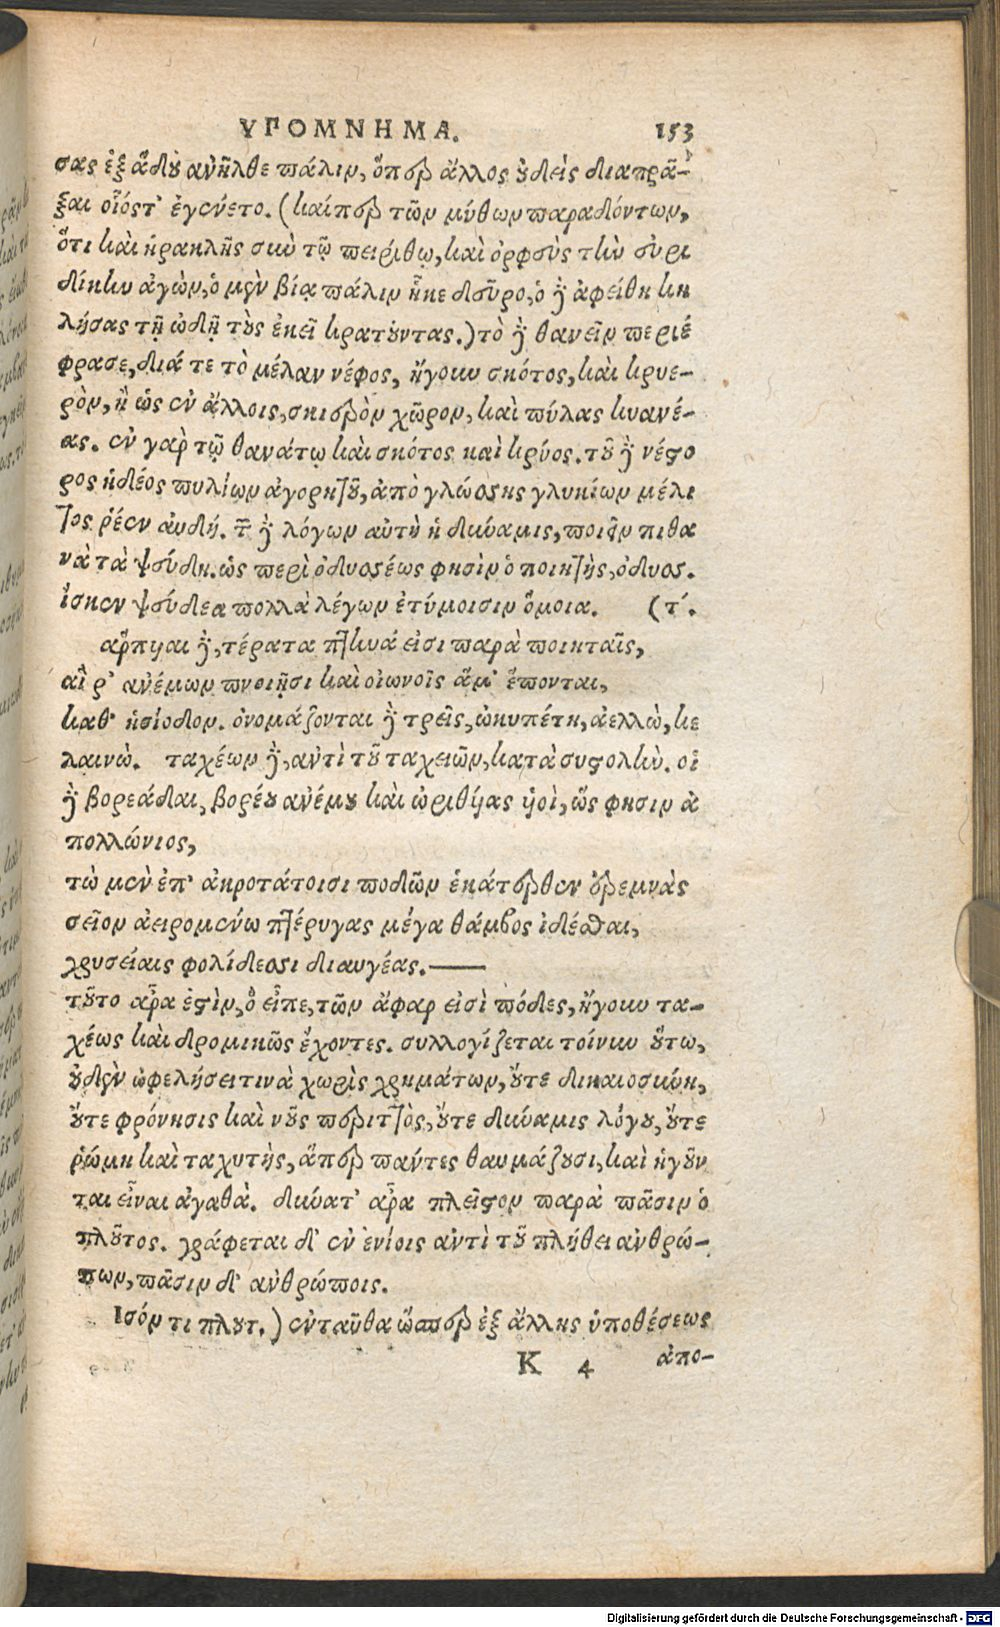 ΥΠΟΜΝΗΜΑ. 153
σας ἐξ ᾅδου ἀνῆλθε πάλιν, ὅπερ ἄλλος οὐδεὶς διαπρᾶ-
ξαι οἷόστ' ἐγένετο. (καίπερ τῶν μύθων παραδόντων,
ὅτι καὶ ἡρακλῆς σὺν τῷ πειρίθῳ, καὶ ὀρφεὺς τὴν εὐρι
δίκην ἀγών, ὁ μὲν βίᾳ πάλιν ἧκε δεῦρο, ὁ δὲ ἀφείθη κη
λήσας τῇ ᾠδῇ τοὺς ἐκεῖ κρατοῦντας.) τὸ δὲ θανεῖν περιέ
φρασε, διά τε τὸ μέλαν νέφος, ἤγουν σκότος, καὶ κρυε-
ρὸν, ἢ ὡς ἐν ἄλλοις, σκιερὸν χῶρον, καὶ πύλας κυανέ-
ας. ἐν γὰρ τῷ θανάτῳ καὶ σκότος καὶ κρύος. τοῦ δὲ νέστο
ρος ἡδέος πυλίων ἀγορητοῦ, ἀπὸ γλώσσης γλυκίων μέλι
τος ῥέεν αὐδή. τῶν δὲ λόγων αὐτὴ ἡ δύναμις, ποιεῖν πιθα
νὰ τὰ ψεύδη. ὡς περὶ ὀδυσσέως φησὶν ὁ ποιητὴς, ὀδυσσ.
ἴσκεν ψεύδεα πολλὰ λέγων ἐτύμοισιν ὅμοια. (τ'.
ἅρπυιαι δὲ, τέρατα πτηνά εἰσι παρὰ ποιηταῖς,
αἵ ῥ' ἀνέμων πνοιῇσι καὶ οἰωνοῖς ἅμ' ἕπονται,
καθ' ἡσίοδον. ὀνομάζονται δὲ τρεῖς, ὠκυπέτη, ἀελλὼ, κε
λαινώ. ταχέων δὲ, ἀντὶ τοῦ ταχειῶν, κατὰ συστολήν. οἱ
δὲ βορεάδαι, βορέου ἀνέμου καὶ ὠριθυίας υἱοὶ, ὥς φησιν ἀ
πολλώνιος,
τὼ μὲν ἐπ' ἀκροτάτοισι ποδῶν ἑκάτερθεν ἐρεμνὰς
σεῖον ἀειρομένω πτέρυγας μέγα θάμβος ἰδέσθαι,
χρυσείαις φολίδεσσι διαυγέας.——
τοῦτο ἄρα ἐστὶν, ὃ εἶπε, τῶν ἄφαρ εἰσὶ πόδες, ἤγουν τα-
χέως καὶ δρομικῶς ἔχοντες. συλλογίζεται τοίνυν οὕτω,
οὐδὲν ὠφελήσει τινὰ χωρὶς χρημάτων, οὔτε δικαιοσύνη,
οὔτε φρόνησις καὶ νοῦς περιττὸς, οὔτε δύναμις λόγου, οὔτε
ῥώμη καὶ ταχυτὴς, ἅπερ πάντες θαυμάζουσι, καὶ ἡγοῦν
ται εἶναι ἀγαθά. δύνατ' ἄρα πλεῖστον παρὰ πᾶσιν ὁ
πλοῦτος. γράφεται δ' ἐν ἐνίοις ἀντὶ τοῦ πλήθει ἀνθρώ-
πων, πᾶσιν δ' ἀνθρώποις.
Ισόν τι πλουτ.) ἐνταῦθα ὥσπερ ἐξ ἄλλης ὑποθέσεως
K 4 ἀπο-
Digitalisierung gefördert durch die Deutsche Forschungsgemeinschaft - DFG